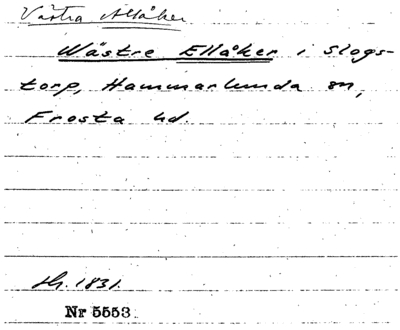 Västra Alåker
Wästre Ellåker i Slogs-
torp, Hammarlunda sn,
Frosta hd.
sk. 1831.
Nr 5553.